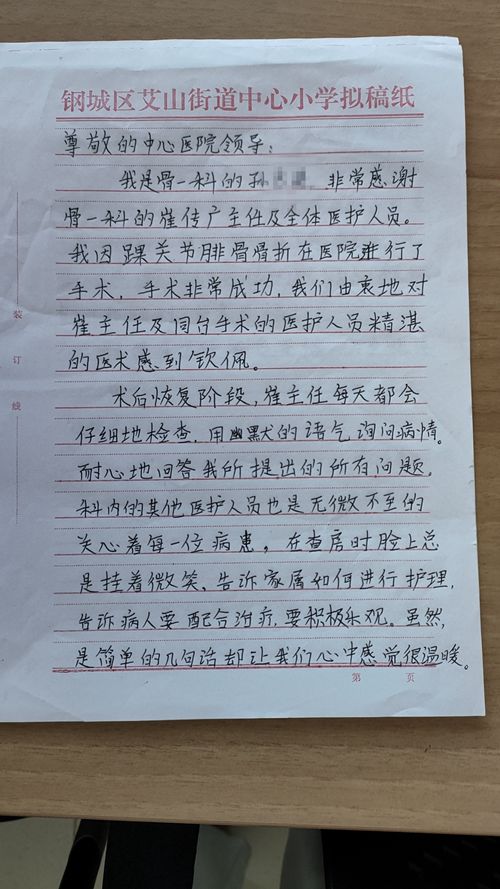 钢城区艾山街道中心小学拟稿纸
尊敬的中心医院领导：
我是骨一科的孙 非常感谢
骨一科的崔传产主任及全体医护人员。
我因踝关节腓骨骨折在医院进行了
手术，手术非常成功，我们由衷地对
崔主任及同台手术的医护人员精湛
的医术感到钦佩。
术后恢复阶段，崔主任每天都会
仔细地检查，用幽默的语气询问病情。
耐心地回答我所提出的所有问题，
科内的其他医护人员也是无微不至的
关心着每一位病患，在查房时脸上总
是挂着微笑、告诉家属如何进行护理，
告诉病人要配合治疗，要积极乐观。虽然，
是简单的几句话却让我们心中感觉很温暖。
第 页
装
订
线